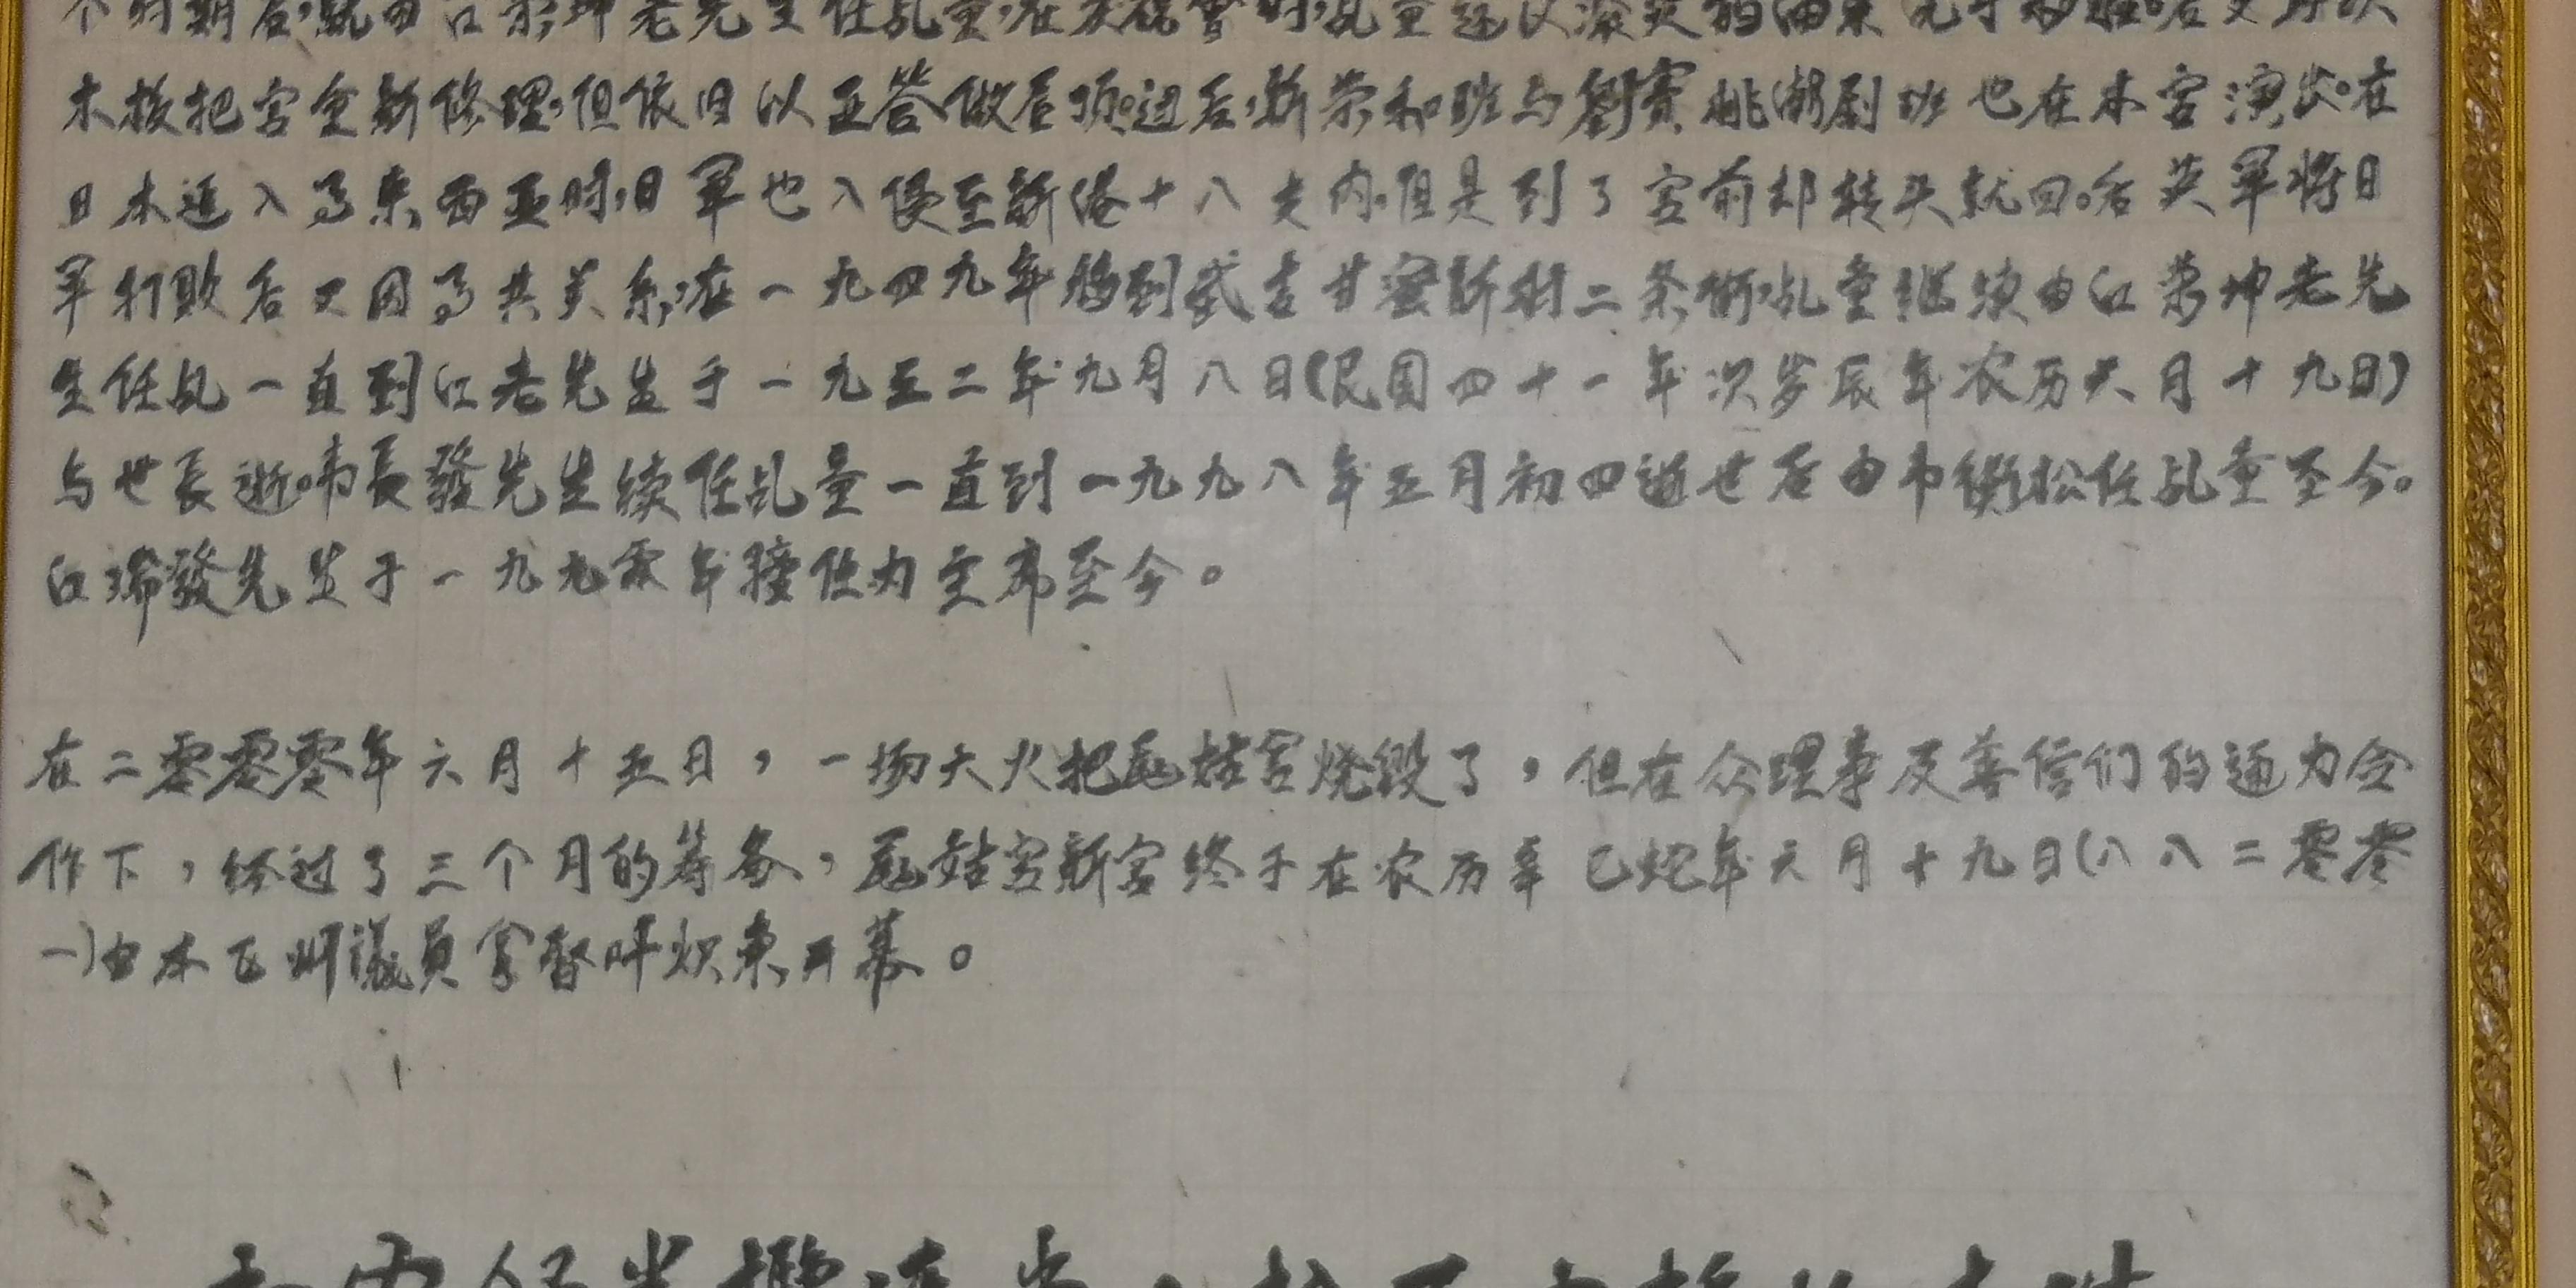 个时期后，就由江荣坤老先生任乩童，在庆祝会时，乩童还以滚
木板把宫重新修理，但依旧以亚答做屋顶。过后，新荣和班与劇赛桃潮剧班也在本宫演出。在
日本进入了东西亚时，日军也入侵至新港十八支内。但是到了宫前却转头就回。后英军将日
军打败后又因马共关系，在一九四九年移到武吉甘蜜新村二条街，乩童继续由江荣坤老先
生任乩一直到江老先生于一九五二年九月八日（民国四十一年次岁辰年农历六月十九日）
与世長逝。韦長發先生续任乩童一直到一九九八年五月初四逝世后由韦衡松任乩童至今。
江瑞發先生于一九九零年接任为主席至今。
在二零零零年六月十五日，一场大火把尪姑宫烧毁了，但在众理事及善信们的通力合
作下，经过了三个月的筹备，尪姑宫新宫终于在农历辛巳蛇年六月十九日（八八二零零
一）由本区州議員拿督叶炽東开幕。